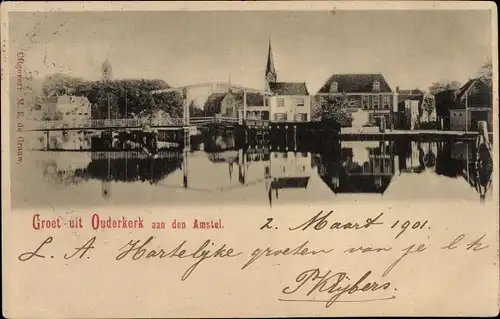 Uitgeverij M. E. de Grauw.
Groet uit Ouderkerk aan den Amstel.
2. Maart 1901.
L. A. Hartelijke groeten van je l k